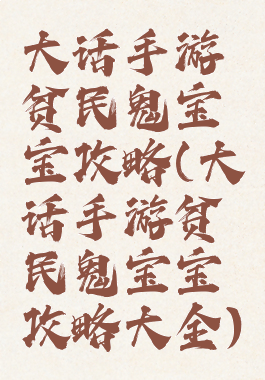 大话手游
贫民鬼宝
宝攻略(大
话手游贫
民鬼宝宝
攻略大全)